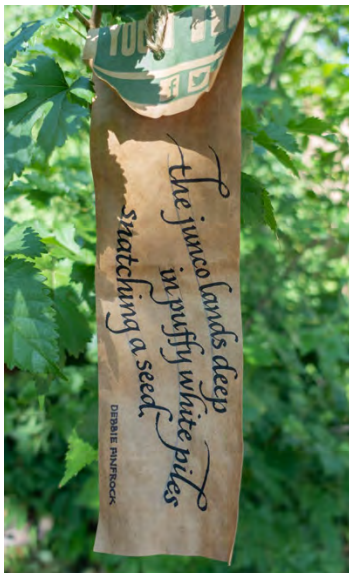 the junco lands deep
in puffy white piles
snatching a seed
DEBBIE PINFROCK